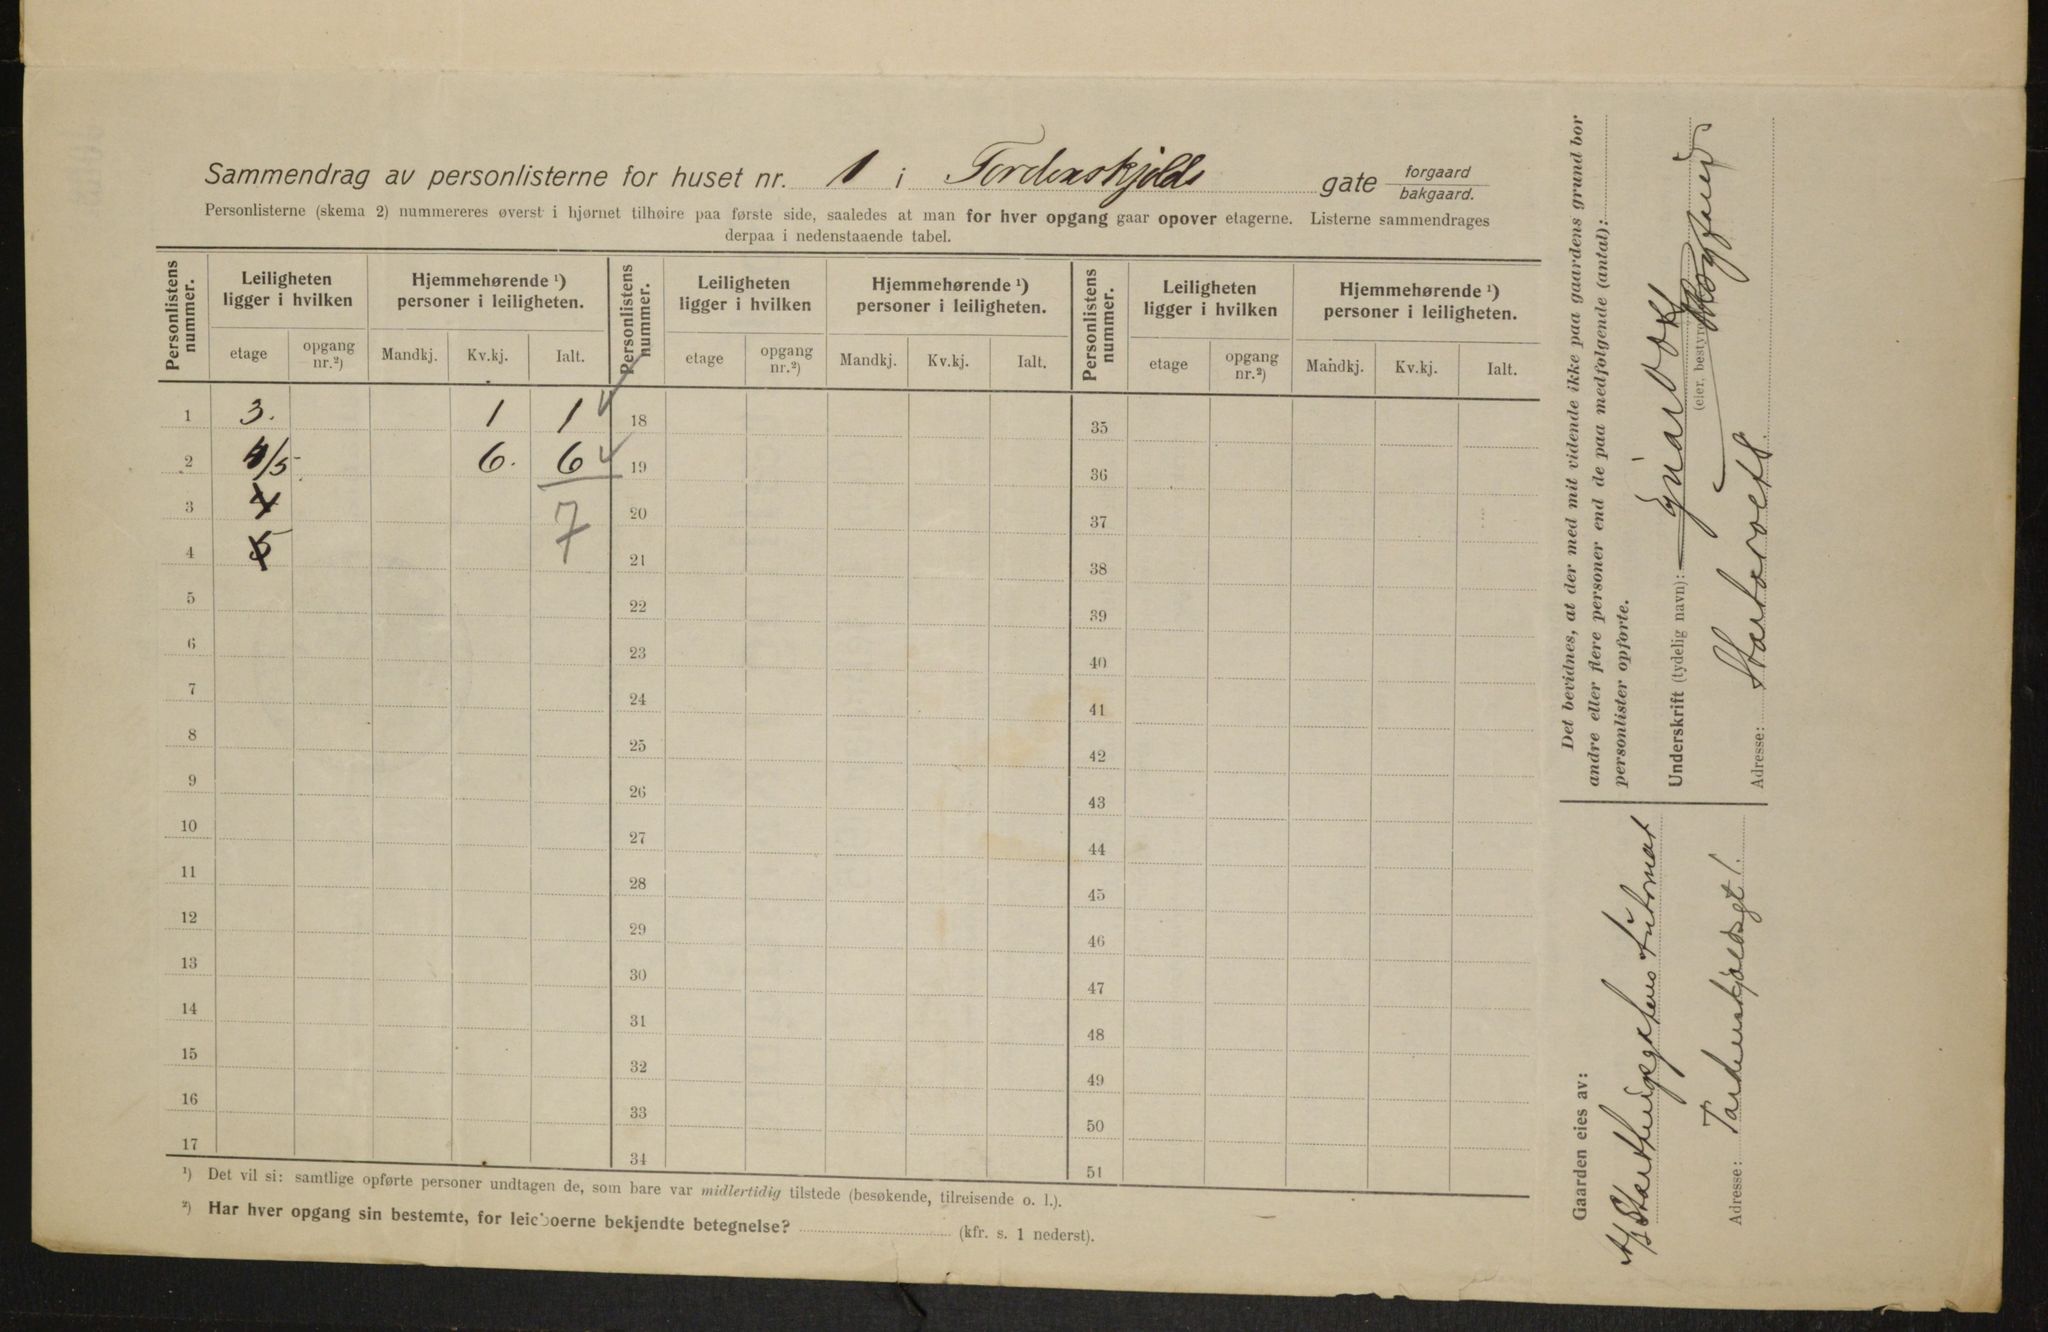 Sammendrag av personlisterne for huset nr. 1 i Tordenskjolds gate forgaard / bakgaard.
Personlisterne (skema 2) nummereres øverst i hjørnet tilhøire paa første side, saaledes at man for hver opgang gaar opover etagerne. Listerne sammendrages
derpaa i nedenstaaende tabel.
Personlistens nummer. Leiligheten ligger i hvilken Hjemmehørende ¹) personer i leiligheten. Personlistens nummer. Leiligheten ligger i hvilken Hjemmehørende ¹) personer i leiligheten. Personlistens nummer. Leiligheten ligger i hvilken Hjemmehørende ¹) personer i leiligheten.
etage opgang nr.²) Mandkj. Kv.kj. Ialt. etage opgang nr.²) Mandkj. Kv.kj. Ialt. etage opgang nr.²) Mandkj. Kv.kj. Ialt.
1 3. 1 1 18 35
2 4/5 6. 6 19 36
3 4 7 20 37
4 5 21 38
5 22 39
6 23 40
7 24 41
8 25 42
9 26 43
10 27 44
11 28 45
12 29 46
13 30 47
14 31 48
15 32 49
16 33 50
17 34 51
¹) Det vil si: samtlige opførte personer undtagen de, som bare var midlertidig tilstede (besøkende, tilreisende o. l.).
²) Har hver opgang sin bestemte, for leieboerne bekjendte betegnelse? (kfr. s. 1 nederst).
Det bevidnes, at der med mit vidende ikke paa gaardens grund bor
andre eller flere personer end de paa medfølgende (antal):
personlister opførte.
Underskrift (tydelig navn):
(eier, bestyrer
Adresse:
Gaarden eies av:
A/S Automat
Adresse: Tordenskjoldsgt 1.